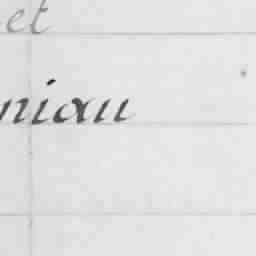 et
niau